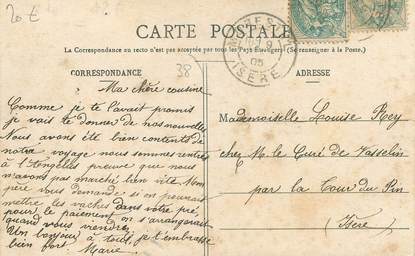 20 €
CARTE POSTALE
La Correspondance au recto n'est pas acceptée par tous les Pays Étrangers (Se renseigner à la Poste.)
CORRESPONDANCE
38
Ma chère cousine
Comme je te l'avait promis
je vais te donner de nos nouvelles
Nous avons été bien contents de
notre voyage nous sommes rentrés
à preuve que nous
n'avons pas marché bien vite. Mon
père vous demande si on peuvent
mettre les vaches dans votre pré
pour le paiement on s'arrangerait
quand vous viendrez
Un bonjour à tous, je t'embrasse
bien fort. Marie
ISÈRE
05
ADRESSE
Mademoiselle Louise Rey
chez M. le Curé de Vasselin
par la Tour du Pin
Isère